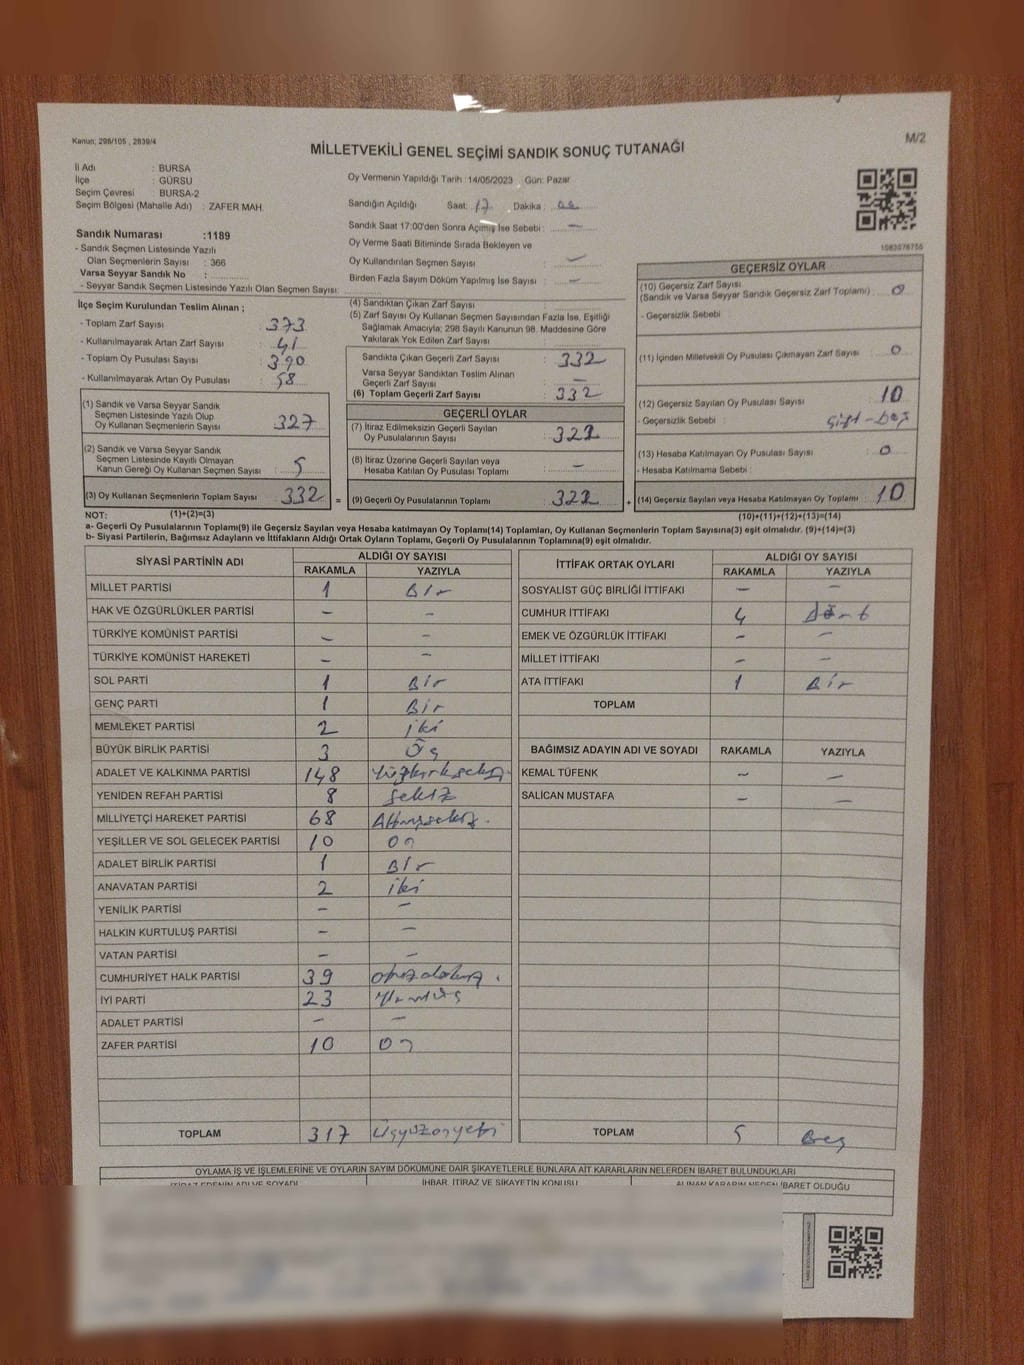 Kanun; 298/105 , 2839/4
M/2
MİLLETVEKİLİ GENEL SEÇİMİ SANDIK SONUÇ TUTANAĞI
İl Adı : BURSA
İlçe : GÜRSU
Seçim Çevresi BURSA-2
Seçim Bölgesi (Mahalle Adı) : ZAFER MAH.
Sandık Numarası :1189
- Sandık Seçmen Listesinde Yazılı
Olan Seçmenlerin Sayısı : 366
Varsa Seyyar Sandık No :
- Seyyar Sandık Seçmen Listesinde Yazılı Olan Seçmen Sayısı:
Oy Vermenin Yapıldığı Tarih : 14/05/2023 Gün: Pazar
Sandığın Açıldığı Saat: 17 Dakika : 00
Sandık Saat 17:00'den Sonra Açılmış İse Sebebi : –
Oy Verme Saati Bitiminde Sırada Bekleyen ve
Oy Kullandırılan Seçmen Sayısı : –
Birden Fazla Sayım Döküm Yapılmış İse Sayısı : –
1083076755
İlçe Seçim Kurulundan Teslim Alınan ;
- Toplam Zarf Sayısı : 373
- Kullanılmayarak Artan Zarf Sayısı : 41
- Toplam Oy Pusulası Sayısı : 390
- Kullanılmayarak Artan Oy Pusulası : 58
(1) Sandık ve Varsa Seyyar Sandık
Seçmen Listesinde Yazılı Olup
Oy Kullanan Seçmenlerin Sayısı : 327
(2) Sandık ve Varsa Seyyar Sandık
Seçmen Listesinde Kayıtlı Olmayan
Kanun Gereği Oy Kullanan Seçmen Sayısı : 5
(3) Oy Kullanan Seçmenlerin Toplam Sayısı : 332 =
(4) Sandıktan Çıkan Zarf Sayısı :
(5) Zarf Sayısı Oy Kullanan Seçmen Sayısından Fazla İse, Eşitliği
Sağlamak Amacıyla; 298 Sayılı Kanunun 98. Maddesine Göre
Yakılarak Yok Edilen Zarf Sayısı :
Sandıkta Çıkan Geçerli Zarf Sayısı : 332
Varsa Seyyar Sandıktan Teslim Alınan
Geçerli Zarf Sayısı : –
(6) Toplam Geçerli Zarf Sayısı : 332
GEÇERLİ OYLAR
(7) İtiraz Edilmeksizin Geçerli Sayılan
Oy Pusulalarının Sayısı : 322
(8) İtiraz Üzerine Geçerli Sayılan veya
Hesaba Katılan Oy Pusulası Toplamı : –
(9) Geçerli Oy Pusulalarının Toplamı : 322 +
GEÇERSİZ OYLAR
(10) Geçersiz Zarf Sayısı
(Sandık ve Varsa Seyyar Sandık Geçersiz Zarf Toplamı) : 0
- Geçersizlik Sebebi
(11) İçinden Milletvekili Oy Pusulası Çıkmayan Zarf Sayısı : 0
(12) Geçersiz Sayılan Oy Pusulası Sayısı : 10
- Geçersizlik Sebebi : Çift - Boş
(13) Hesaba Katılmayan Oy Pusulası Sayısı : 0
- Hesaba Katılmama Sebebi :
(14) Geçersiz Sayılan veya Hesaba Katılmayan Oy Toplamı : 10
NOT: (1)+(2)=(3) (10)+(11)+(12)+(13)=(14)
a- Geçerli Oy Pusulalarının Toplamı(9) ile Geçersiz Sayılan veya Hesaba katılmayan Oy Toplamı(14) Toplamları, Oy Kullanan Seçmenlerin Toplam Sayısına(3) eşit olmalıdır. (9)+(14)=(3)
b- Siyasi Partilerin, Bağımsız Adayların ve İttifakların Aldığı Ortak Oyların Toplamı, Geçerli Oy Pusulalarının Toplamına(9) eşit olmalıdır.
SİYASİ PARTİNİN ADI ALDIĞI OY SAYISI
RAKAMLA YAZIYLA
MİLLET PARTİSİ 1 Bir
HAK VE ÖZGÜRLÜKLER PARTİSİ – –
TÜRKİYE KOMÜNİST PARTİSİ – –
TÜRKİYE KOMÜNİST HAREKETİ – –
SOL PARTİ 1 Bir
GENÇ PARTİ 1 Bir
MEMLEKET PARTİSİ 2 iki
BÜYÜK BİRLİK PARTİSİ 3 Üç
ADALET VE KALKINMA PARTİSİ 148 Yüzkırksekiz
YENİDEN REFAH PARTİSİ 8 Sekiz
MİLLİYETÇİ HAREKET PARTİSİ 68 Altmışsekiz.
YEŞİLLER VE SOL GELECEK PARTİSİ 10 On
ADALET BİRLİK PARTİSİ 1 Bir
ANAVATAN PARTİSİ 2 iki
YENİLİK PARTİSİ – –
HALKIN KURTULUŞ PARTİSİ – –
VATAN PARTİSİ – –
CUMHURİYET HALK PARTİSİ 39 otuzdokuz.
İYİ PARTİ 23 Yirmiüç
ADALET PARTİSİ – –
ZAFER PARTİSİ 10 On
TOPLAM 317 Üçyüzonyedi
İTTİFAK ORTAK OYLARI ALDIĞI OY SAYISI
RAKAMLA YAZIYLA
SOSYALİST GÜÇ BİRLİĞİ İTTİFAKI – –
CUMHUR İTTİFAKI 4 Dört
EMEK VE ÖZGÜRLÜK İTTİFAKI – –
MİLLET İTTİFAKI – –
ATA İTTİFAKI 1 Bir
TOPLAM
BAĞIMSIZ ADAYIN ADI VE SOYADI RAKAMLA YAZIYLA
KEMAL TÜFENK – –
SALİCAN MUSTAFA – –
TOPLAM 5 Beş
OYLAMA İŞ VE İŞLEMLERİNE VE OYLARIN SAYIM DÖKÜMÜNE DAİR ŞİKAYETLERLE BUNLARA AİT KARARLARIN NELERDEN İBARET BULUNDUKLARI
İTİRAZ EDENİN ADI VE SOYADI İHBAR, İTİRAZ VE ŞİKAYETİN KONUSU ALINAN KARARIN NEDEN İBARET OLDUĞU